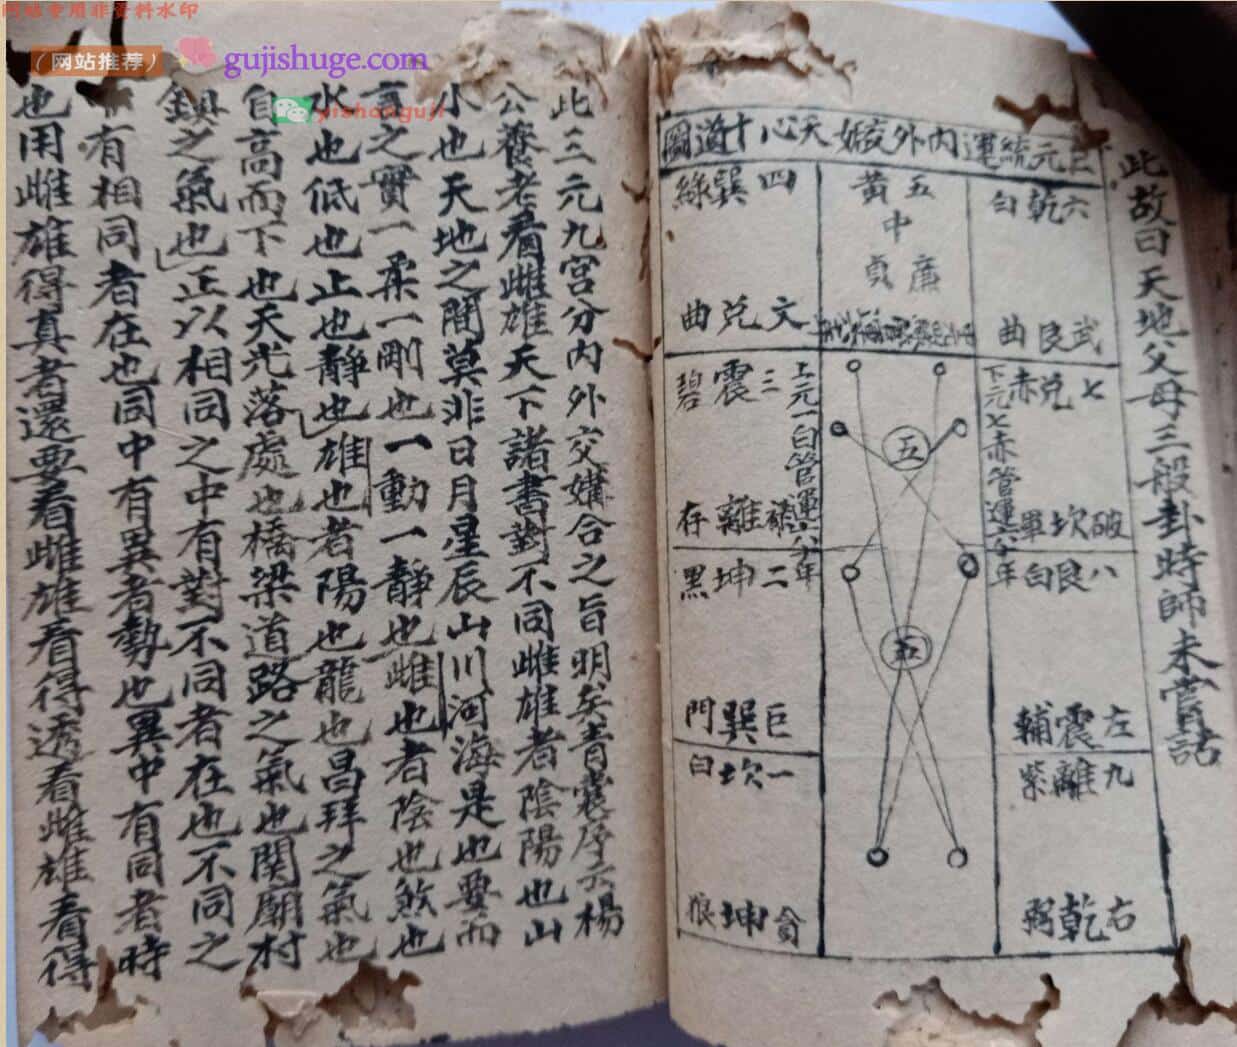 网站专用非资料水印
（网站推荐）
gujishuge.com
yishanguji
此故曰天地父母三般卦時師未嘗話
三元統運內外交媾天心十道圖
六乾白
武艮曲
五黃
中
廉貞
四巽綠
文兌曲
七兌赤
破坎軍
下元七赤管運六十年
五
五
上元一白管運六十年
三震碧
祿離存
八艮白
左震輔
二坤黑
巨巽門
九離紫
右乾弼
一坎白
貪坤狼
此三元九宮分內外交媾合之旨明矣青囊序云楊
公養老看雌雄天下諸書對不同雌雄者陰陽也山
小也天地之間莫非日月星辰山川河海是也要而
言之實一柔一剛也一動一靜也雌也者陰也煞也
水也低也止也靜也雄也者陽也龍也昌拜之氣也
自高而下也天光落處也橋梁道路之氣也關廟村
鎮之氣也正以相同之中有對不同者在也不同之
有相同者在也同中有異者勢也異中有同者時
也用雌雄得真者還要看雌雄看得透看雌雄看得